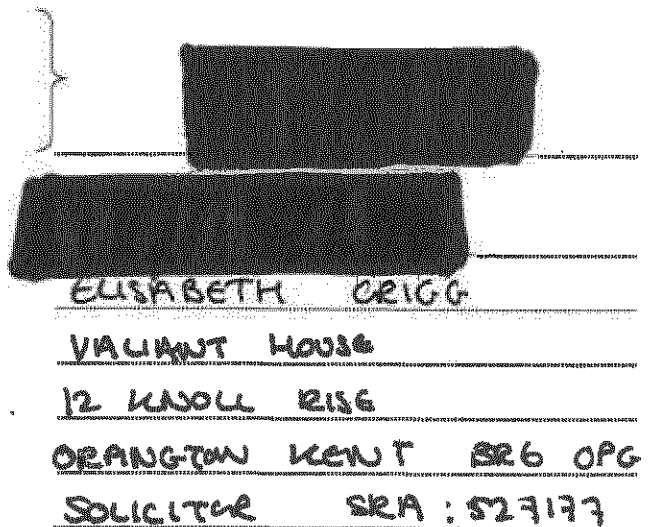 ELISABETH CRIGG
VALIANT HOUSE
12 KNOLL RISE
ORPINGTON KENT BR6 0PG
SOLICITOR SRA : 527177